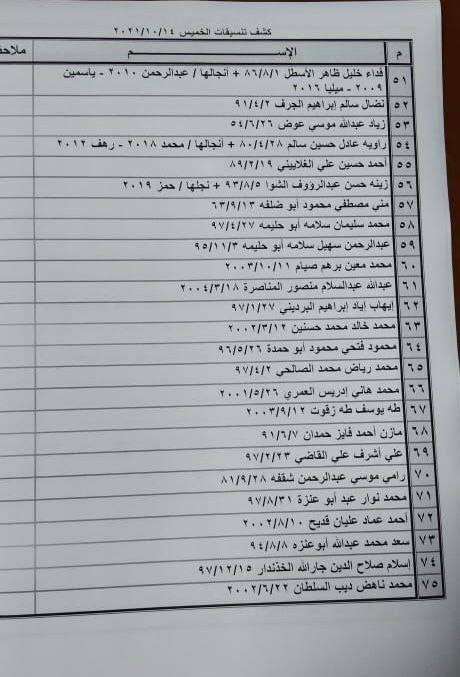 كشف تنسيقات الخميس ٢٠٢١/١٠/١٤
م الإســـم
٥١ فداء خليل ظاهر الأسطل ٨٦/٨/١ + أنجالها / عبدالرحمن ٢٠١٠ - ياسمين
٢٠٠٩ - ميليا ٢٠١٦
٥٢ نضال سالم إبراهيم الجرف ٩١/٤/٢
٥٣ زياد عبدالله موسي عوض ٥٤/٦/٢٦
٥٤ راويه عادل حسين سالم ٨٠/٤/٢٨ + أنجالها / محمد ٢٠١٨ - رهف ٢٠١٢
٥٥ أحمد حسين علي الغلاييني ٨٩/٢/١٩
٥٦ زينه حسن عبدالرؤوف الشوا ٩٣/٨/٥ + نجلها / حمز ٢٠١٩
٥٧ مني مصطفي محمود أبو ضلفه ٦٣/٩/١٣
٥٨ محمد سليمان سلامه أبو حليمه ٩٧/٤/٢٧
٥٩ عبدالرحمن سهيل سلامه أبو حليمه ٩٥/١١/٣
٦٠ محمد معين برهم صيام ٢٠٠٣/١٠/١١
٦١ عبدالله عبدالسلام منصور المناصرة ٢٠٠٤/٣/١٨
٦٢ إيهاب إياد إبراهيم البرديني ٩٧/١/٢٧
٦٣ محمد خالد محمد حسنين ٢٠٠٢/٣/١٢
٦٤ محمود فتحي محمود أبو حمدة ٩٦/٥/٢٦
٦٥ محمد رياض محمد الصالحي ٩٧/٤/٢
٦٦ محمد هاني إدريس العمري ٢٠٠١/٥/٢٦
٦٧ طه يوسف طه زقوت ٢٠٠٣/٩/١٢
٦٨ مازن أحمد فايز حمدان ٩١/٦/٧
٦٩ علي أشرف علي القاضي ٩٧/٢/٢٣
٧٠ رامي موسي عبدالرحمن شقفه ٨١/٩/٢٨
٧١ محمد نوار عبد أبو عنزة ٩٧/٨/٣١
٧٢ أحمد عماد عليان قديح ٢٠٠٢/٨/١٠
٧٣ سعد محمد عبدالله أبوعنزه ٩٤/٨/٨
٧٤ إسلام صلاح الدين جارالله الخذندار ٩٧/١٢/١٥
٧٥ محمد ناهض ديب السلطان ٢٠٠٢/٦/٢٢